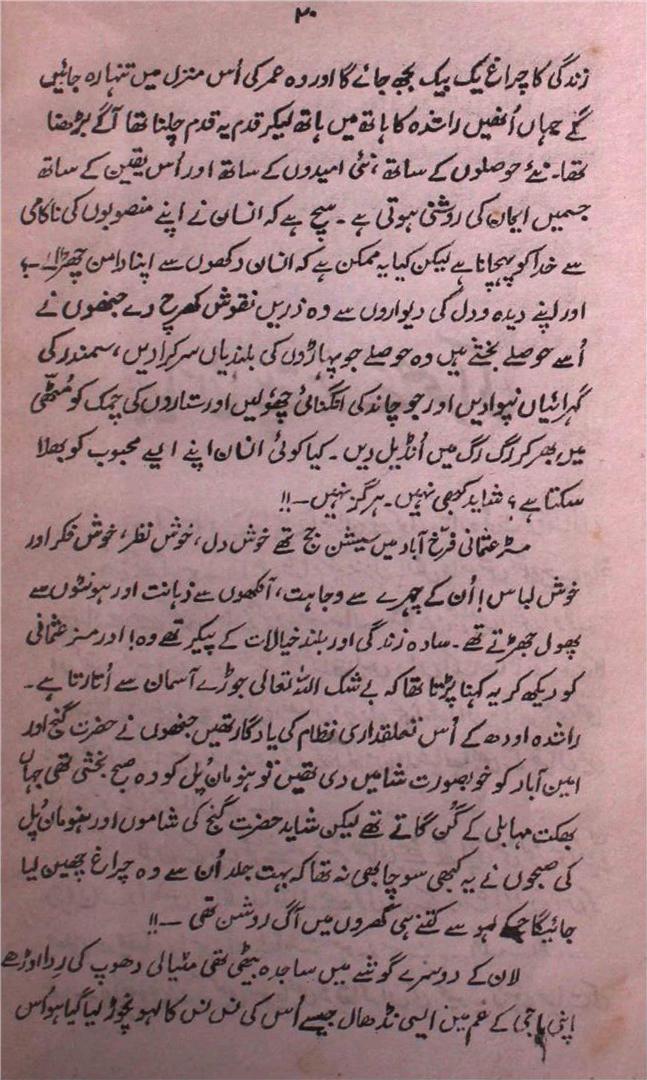 ۲۰
زندگی کا چراغ یک بیک بجھ جائے گا اور وہ عمر کی اُس منزل میں تنہا رہ جائیں
گے جہاں اُنھیں راشدہ کا ہاتھ میں ہاتھ لیکر قدم بہ قدم چلنا تھا آگے بڑھنا
تھا۔ نئے حوصلوں کے ساتھ، نئی امیدوں کے ساتھ اور اُس یقین کے ساتھ
جسمیں ایمان کی روشنی ہوتی ہے۔ سچ ہے کہ انسان نے اپنے منصوبوں کی ناکامی
سے خدا کو پہچانا ہے لیکن کیا یہ ممکن ہے کہ انسان دکھوں سے اپنا دامن چھڑالے۔؟
اور اپنے دیدہ و دل کی دیواروں سے وہ زریں نقوش کھرچ دے جنھوں نے
اُسے حوصلے بخشے ہیں وہ حوصلے جو پہاڑوں کی بلندیاں سر کرادیں، سمندر کی
گہرائیاں نپوادیں اور جو چاند کی انگنائی چھولیں اور ستاروں کی چمک کو مُٹھی
میں بھر کر رگ رگ میں اُنڈیل دیں۔ کیا کوئی انسان اپنے ایسے محبوب کو بھلا
سکتا ہے؟ شاید کبھی نہیں۔ ہرگز نہیں۔!!
مسٹر عثمانی فرّخ آباد میں سیشن جج تھے خوش دل، خوش نظر، خوش فکر اور
خوش لباس! اُن کے چہرے سے وجاہت، آنکھوں سے ذہانت اور ہونٹوں سے
پھول جھڑتے تھے۔ سادہ زندگی اور بلند خیالات کے پیکر تھے وہ! اور مسز عثمانی
کو دیکھ کر یہ کہنا پڑتا تھا کہ بے شک اللہ تعالی جوڑے آسمان سے اُتارتا ہے۔
راشدہ اودھ کے اُس تعلقداری نظام کی یادگار تھیں جنھوں نے حضرت گنج اور
امین آباد کو خوبصورت شامیں دی تھیں تو ہنومان پُل کو وہ صبح بخشی تھی جہاں
بھکت مہابلی کے گُن گاتے تھے لیکن شاید حضرت گنج کی شاموں اور ہنومان پُل
کی صبحوں نے یہ کبھی سوچا بھی نہ تھا کہ بہت جلد اُن سے وہ چراغ چھین لیا
جائیگا جسکے لہو سے کتنے ہی گھروں میں آگ روشن تھی۔!!
لان کے دوسرے گوشے میں ساجدہ بیٹھی تھی مٹیالی دھوپ کی رِدا اوڑھے
اپنی باجی کے غم میں ایسی نڈھال جیسے اُس کی نس نس کا لہو نچوڑ لیا گیا ہو اُس